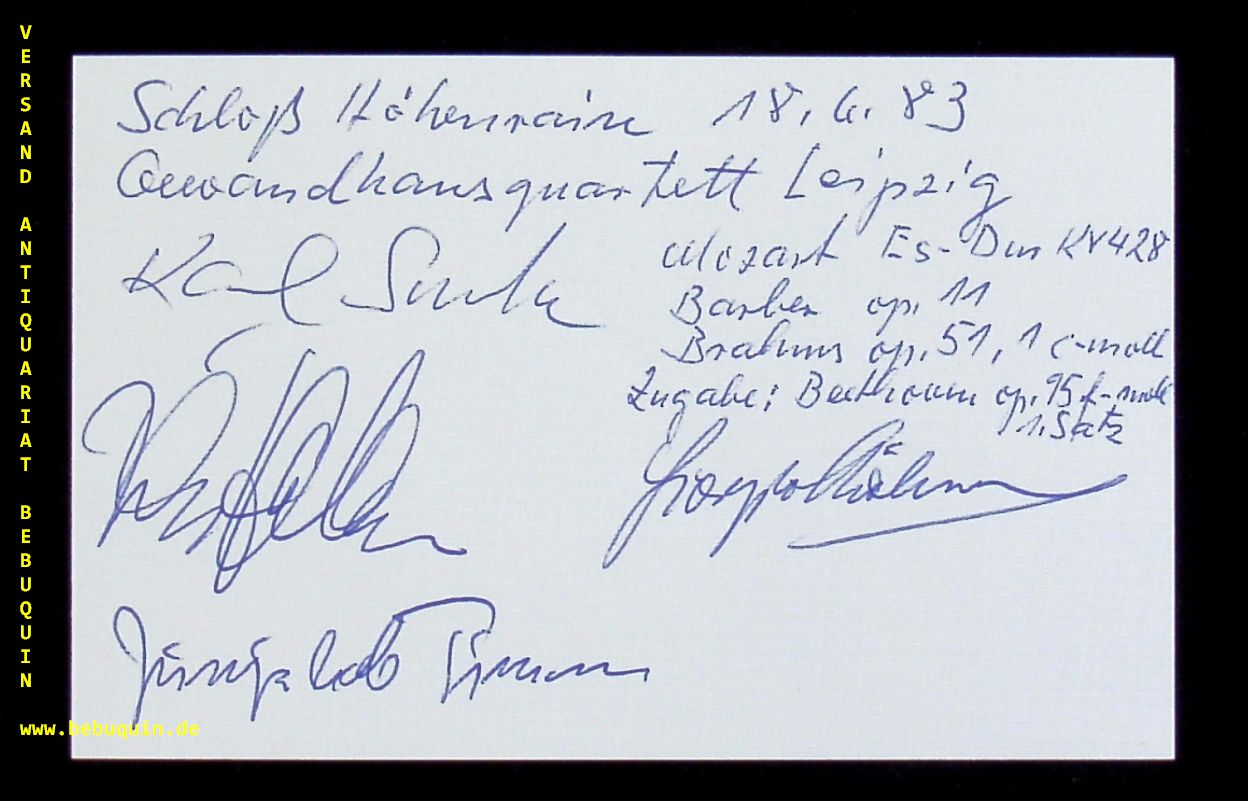 Schloß Höhenrain 18.6.83
Gewandhausquartett Leipzig
Karl Suske
Mozart Es-Dur KV 428
Barber op. 11
Brahms op. 51, 1 c-moll
Zugabe: Beethoven op. 95 f-moll
1. Satz
Jürnjakob Timm
VERSAND ANTIQUARIAT BEBUQUIN
www.bebuquin.de